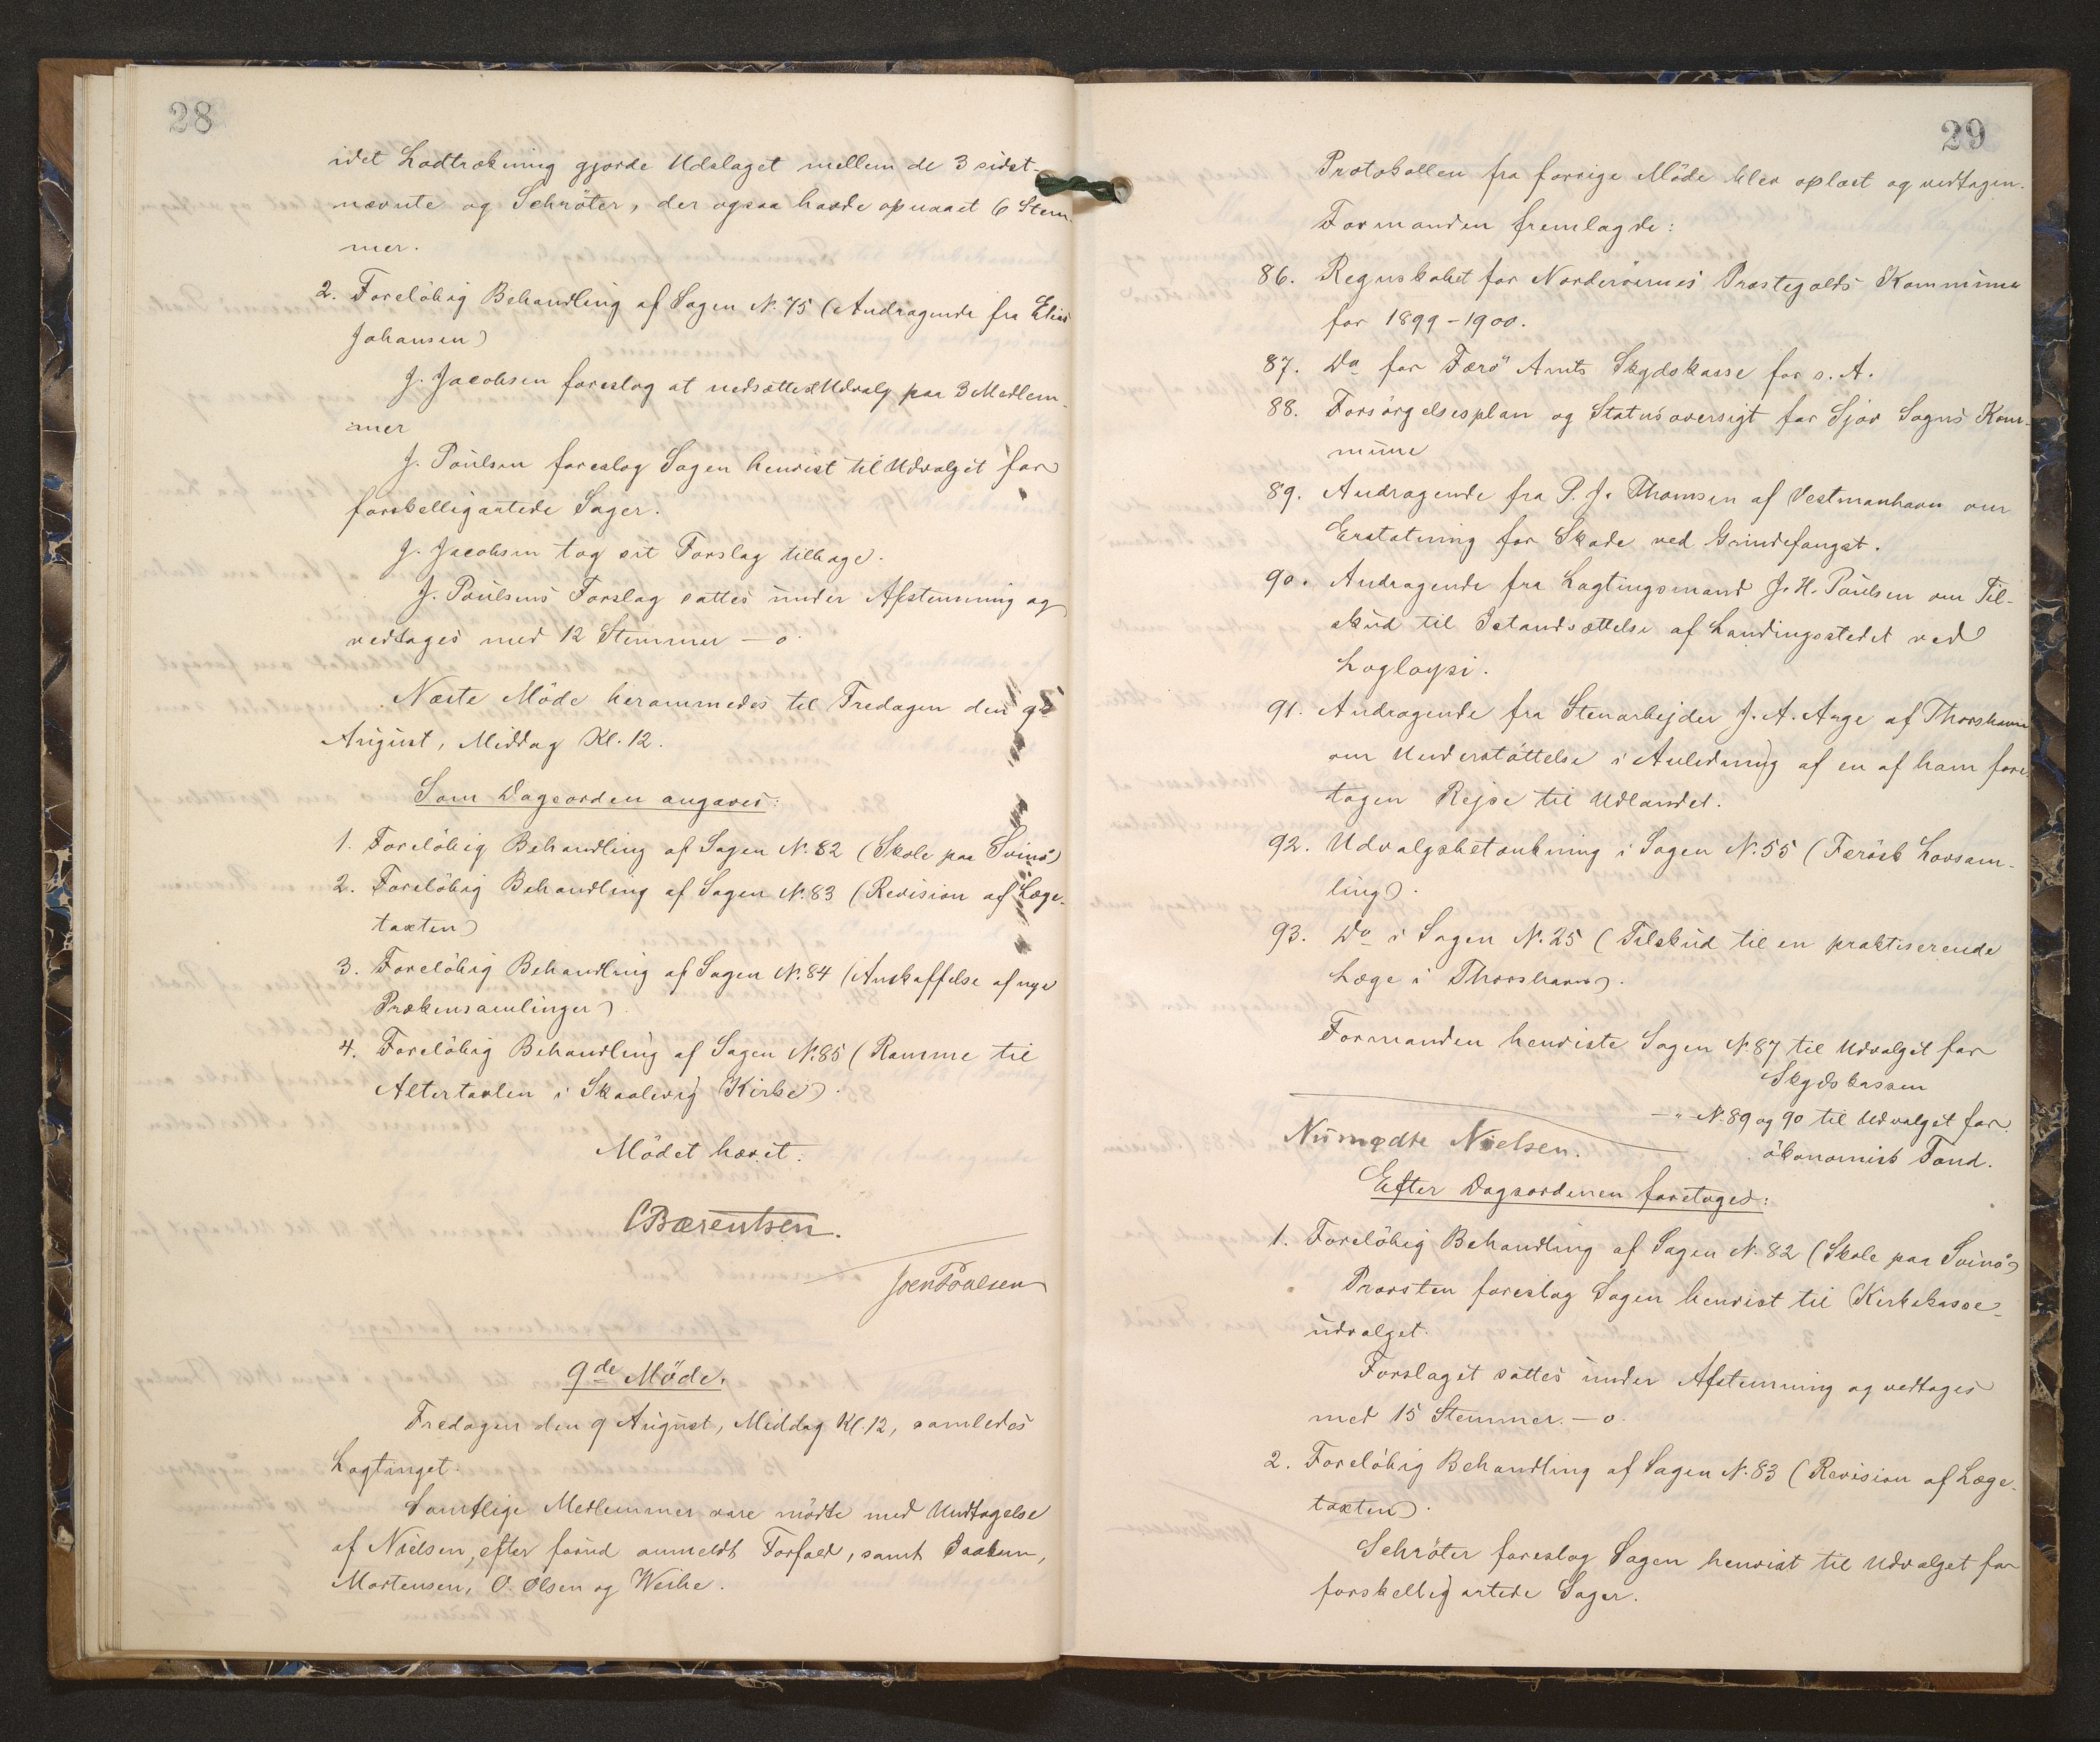 28
idet Lodtrækning gjorde Udslaget mellem de 3 sidst-
nævnte og Schröter, der ogsaa havde opnaaet 6 Stem-
mer.
2. Foreløbig Behandling af Sagen N. 75 (Andragende fra Elias
Johansen)
J. Jacobsen foreslog at nedsættes Udvalg paa 3 Medlem-
mer
J. Poulsen foreslog Sagen henvist til Udvalget for
forskelligartede Sager.
J. Jacobsen tog sit Forslag tilbage.
J. Poulsens Forslag sattes under Afstemning og
vedtoges med 12 Stemmer — 0.
Næste Møde berammedes til Fredagen den 9de
August, Middag Kl. 12.
Som Dagsorden angaves:
1. Foreløbig Behandling af Sagen N. 82 (Skole paa Svinø)
2. Foreløbig Behandling af Sagen N. 83 (Revision af Læge-
taxten)
3. Foreløbig Behandling af Sagen N. 84 (Anskaffelse af nye
Prækensamlinger)
4. Foreløbig Behandling af Sagen N. 85 (Ramme til
Altertavlen i Skaalevig Kirke).
Mødet hævet.
CBærentsen.
Joen Poulsen
9de Møde.
Fredagen den 9 August, Middag Kl. 12, samledes
Lagtinget.
Samtlige Medlemmer vare mødte med Undtagelse
af Nielsen, efter forud anmeldt Forfald, samt Isaksen,
Mortensen, O. Olsen og Weihe.
29
Protokollen fra forrige Møde blev oplæst og vedtagen.
Formanden fremlagde:
86. Regnskabet for Norderøernes Præstegjælds Kommune
for 1899-1900.
87. Do for Færø Amts Skydskasse for s. A.
88. Forsørgelsesplan og Statusoversigt for Sjov Sogns Kom-
mune
89. Andragende fra P. J. Thomsen af Vestmanhavn om
Erstatning for Skade ved Grindefangst.
90. Andragende fra Lagtingsmand J. H. Poulsen om Til-
skud til Istandsættelse af Landingsstedet ved
Lagloypi.
91. Andragende fra Stenarbejder J. A. Arge af Thorshavn
om Understøttelse i Anledning af en af ham fore-
tagen Rejse til Udlandet.
92. Udvalgsbetænkning i Sagen N. 55 (Færøsk Lovsam-
ling).
93. Do i Sagen N. 25 (Tilskud til en praktiserende
Læge i Thorshavn).
Formanden henviste Sagen N. 87 til Udvalget for
Skydskassen
— " N. 89 og 90 til Udvalget for
økonomisk Fond.
Nu mødte Nielsen.
Efter Dagsordenen foretoges:
1. Foreløbig Behandling af Sagen N. 82 (Skole paa Svinø)
Provsten foreslog Sagen henvist til Kirkekasse-
udvalget.
Forslaget sattes under Afstemning og vedtoges
med 15 Stemmer. — 0.
2. Foreløbig Behandling af Sagen N. 83 (Revision af Læge-
taxten).
Schröter foreslog Sagen henvist til Udvalget for
forskelligartede Sager.